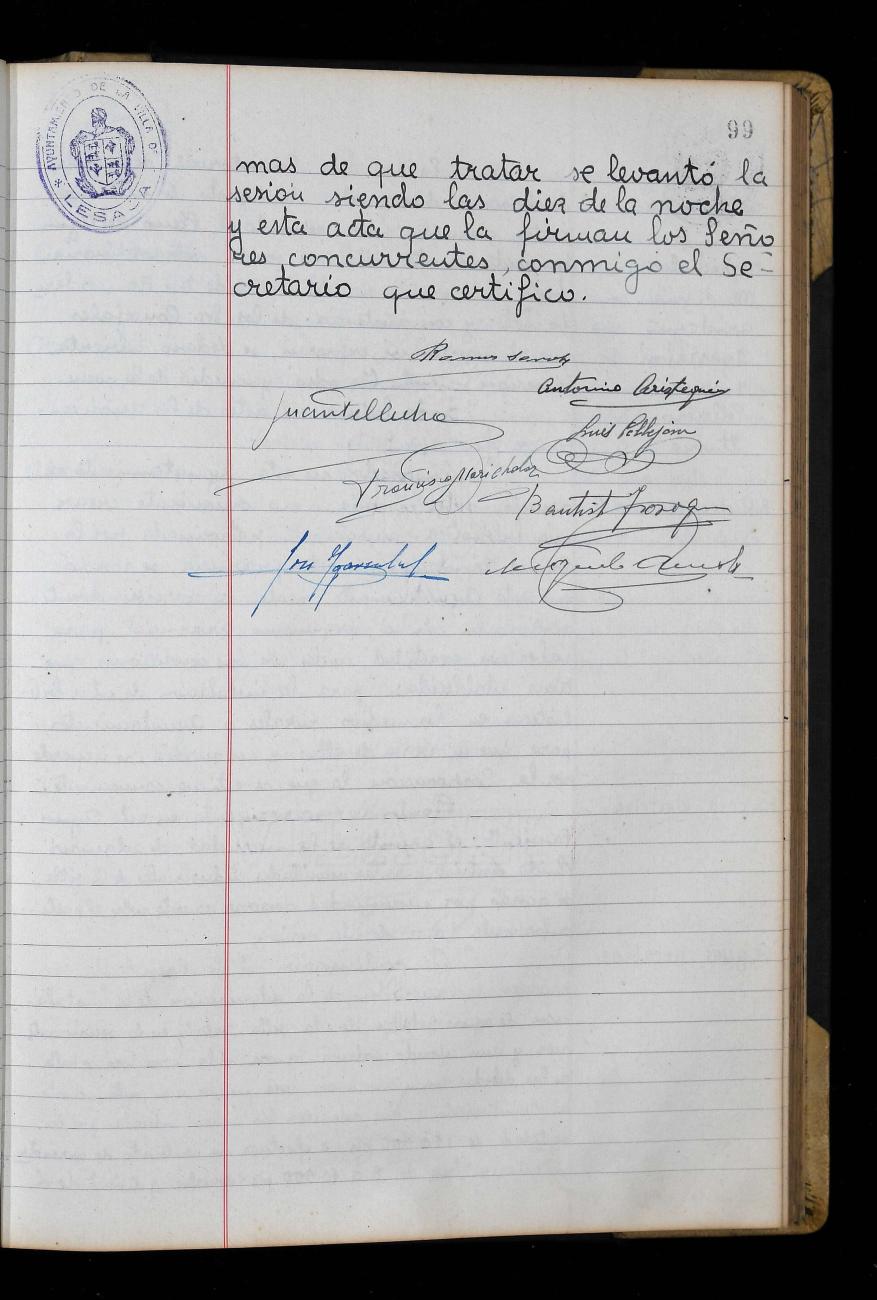 AYUNTAMIENTO DE LA VILLA DE
* LESACA *
99
mas de que tratar se levantó la
sesion siendo las diez de la noche
y esta acta que la firman los Seño
res concurrentes, conmigo el Se-
cretario que certifico.
Antonino Aristegui
Juan Tellechea
Luis
Francisco Marichalar
Bautist